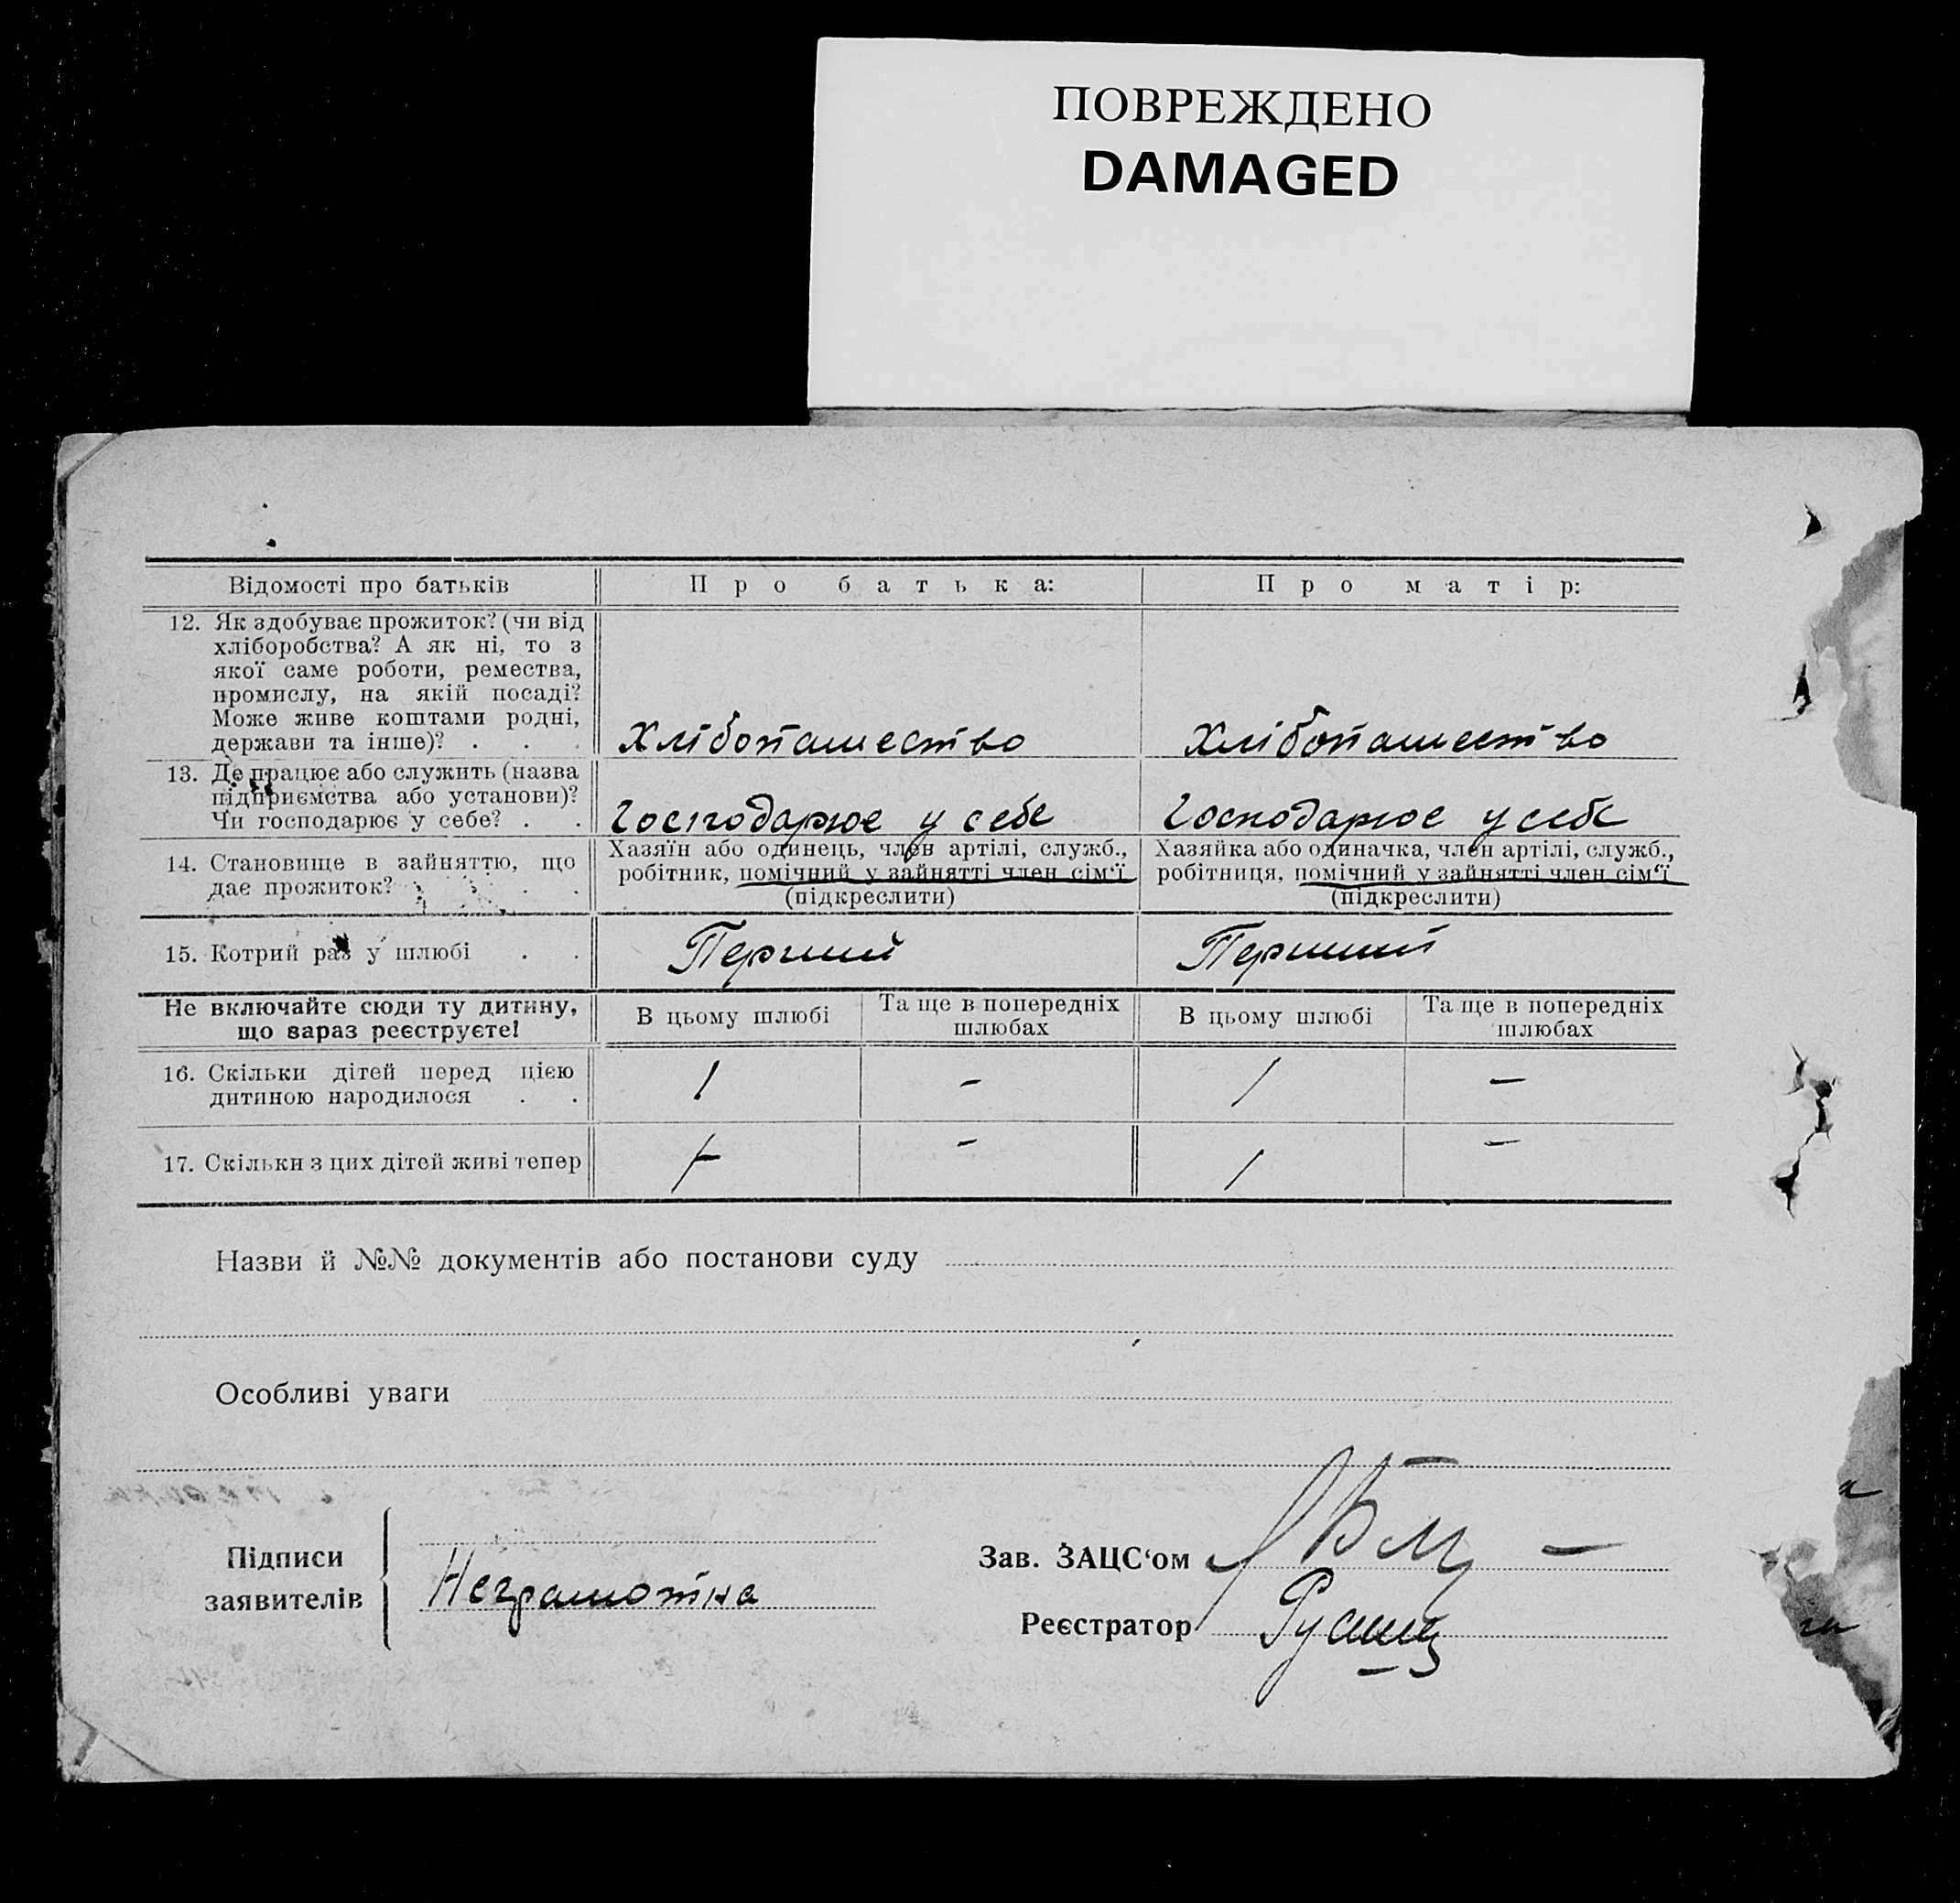 ПОВРЕЖДЕНО
DAMAGED
Відомості про батьків
Про батька:
Про матір:
12. Як здобуває прожиток? (чи від
хліборобства? А як ні, то з
якої саме роботи, ремества,
промислу, на якій посаді?
Може живе коштами родні,
держави та інше)? . . .
Хлібопашество
Хлібопашество
13. Де працює або служить (назва
підприємства або установи)?
Чи господарює у себе? . .
Господарює у себе
Господарює у себе
14. Становище в зайняттю, що
дає прожиток? . . .
Хазяїн або одинець, член артілі, служб.,
робітник, помічний у зайнятті член сім'ї
(підкреслити)
Хазяйка або одиначка, член артілі, служб.,
робітниця, помічний у зайнятті член сім'ї
(підкреслити)
15. Котрий раз у шлюбі . .
Перший
Перший
Не включайте сюди ту дитину,
що зараз реєструєте!
В цьому шлюбі
Та ще в попередніх
шлюбах
В цьому шлюбі
Та ще в попередніх
шлюбах
16. Скільки дітей перед цією
дитиною народилося . .
1
–
1
–
17. Скільки з цих дітей живі тепер
1
–
1
–
Назви й №№ документів або постанови суду
Особливі уваги
Підписи
заявителів
Неграмотна
Зав. ЗАЦС'ом
Реєстратор